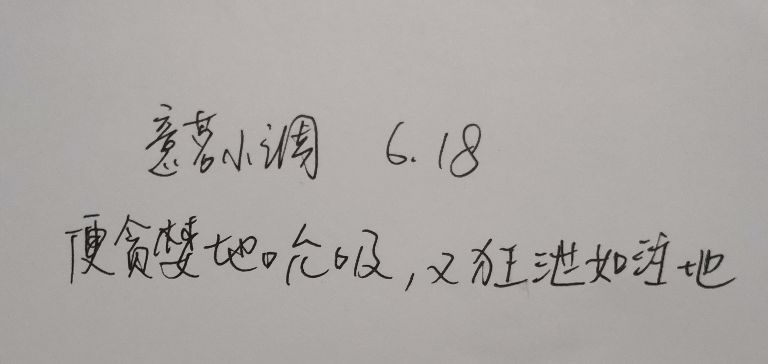 意茗小调 6.18
便贪婪地吮吸,又狂泄如注地